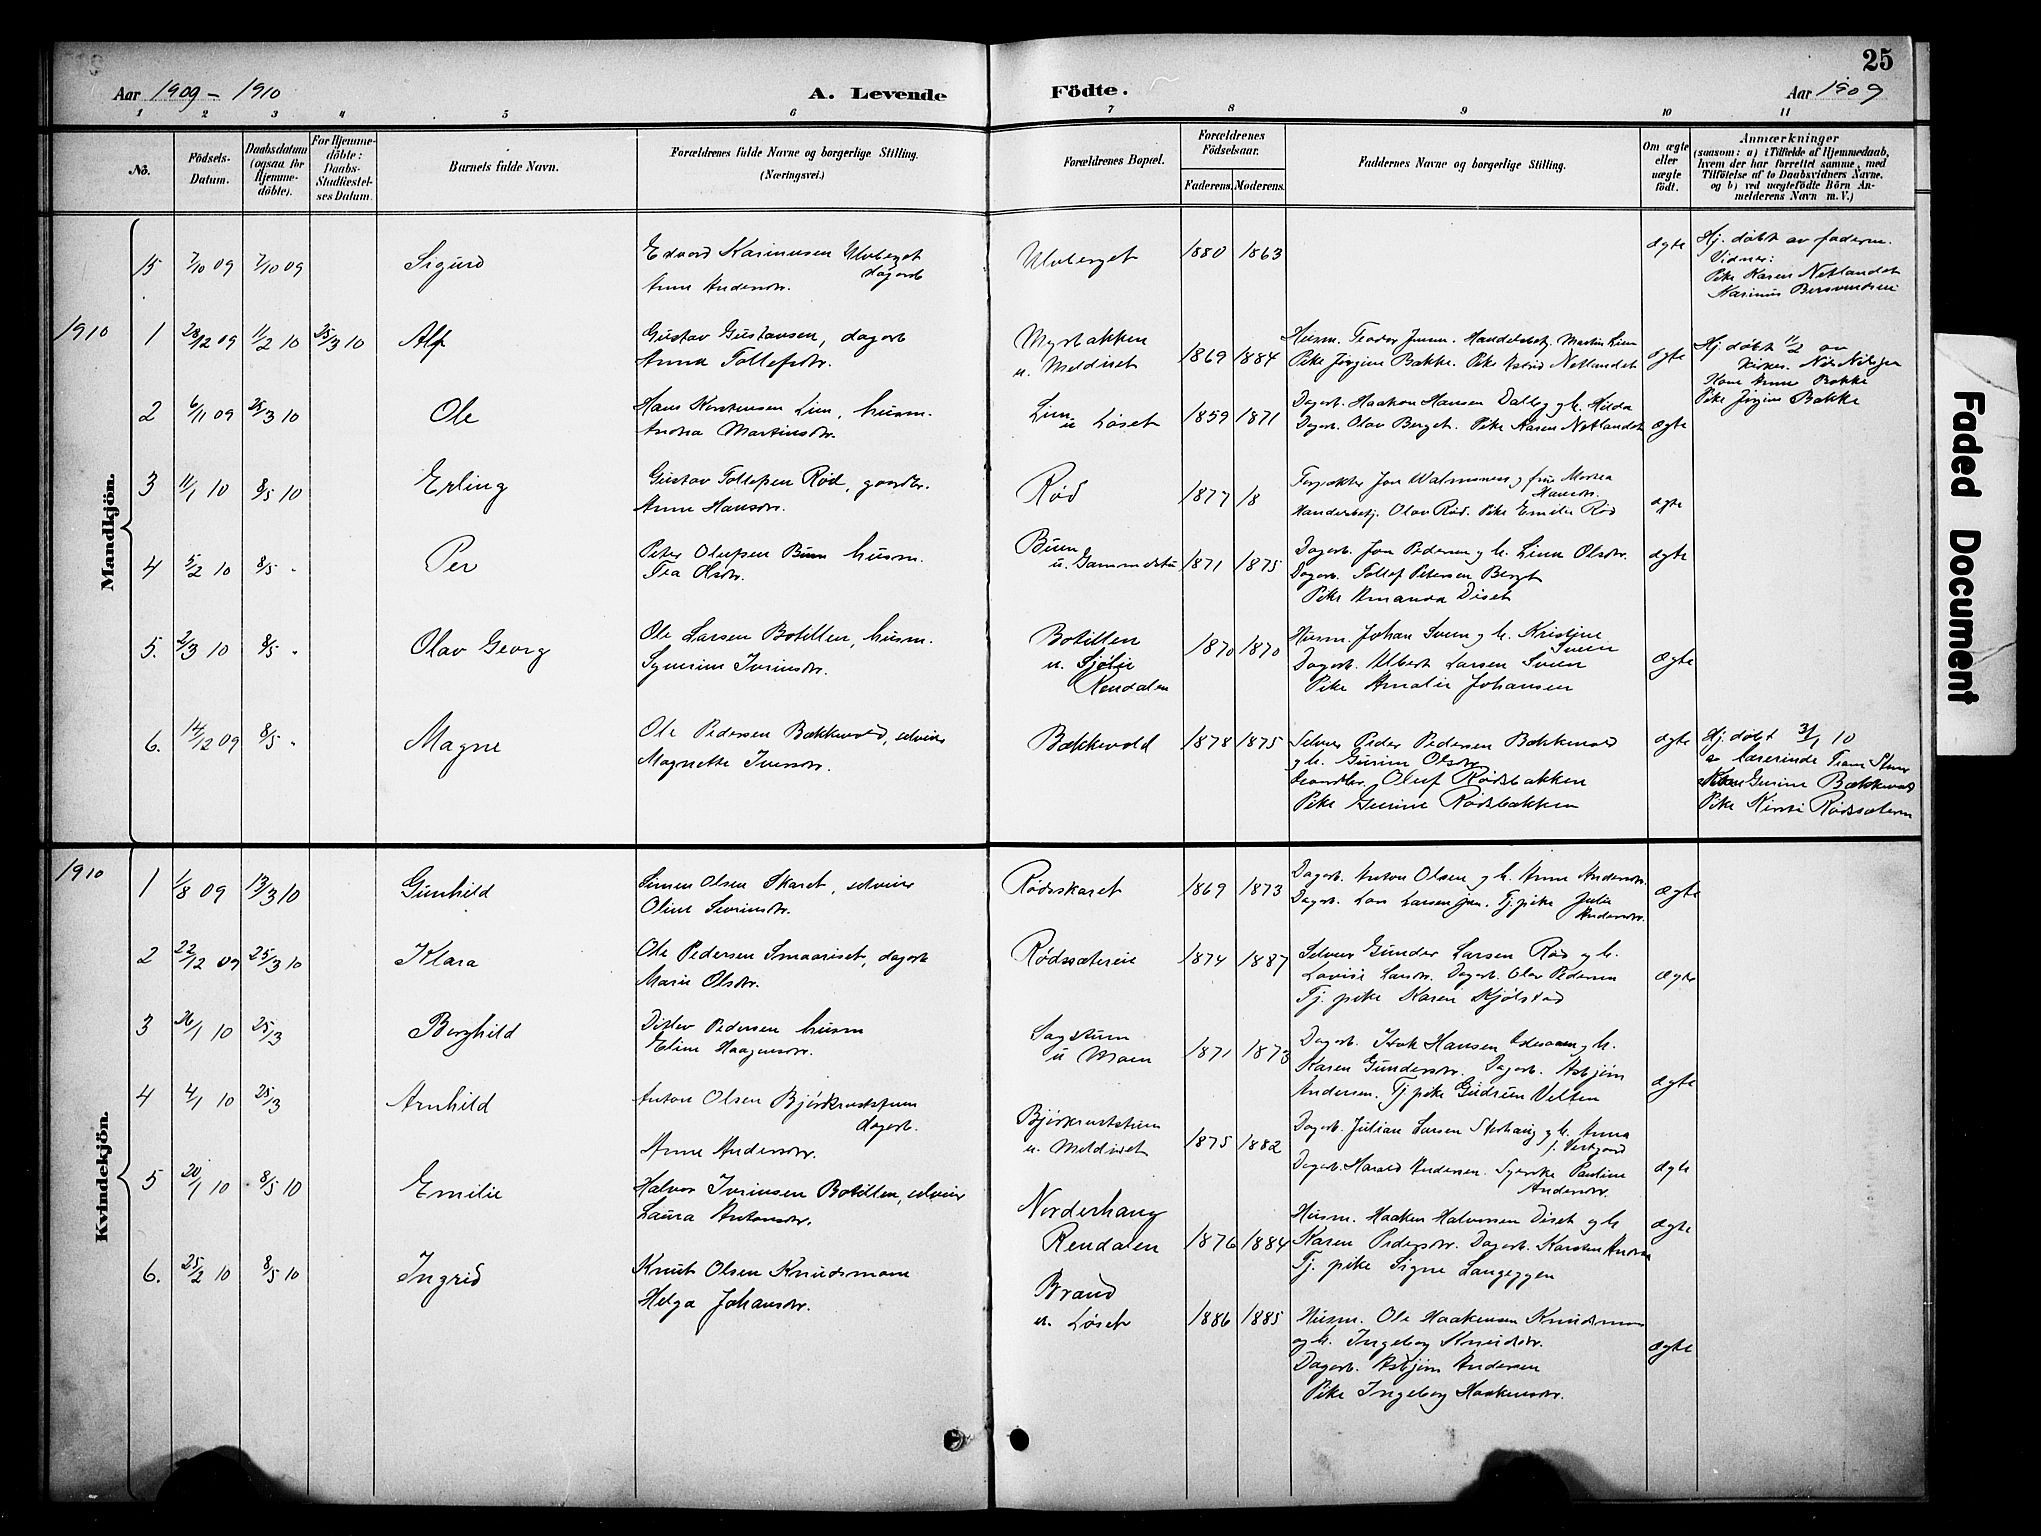 25
Aar 1909 - 1910
A. Levende Födte.
Aar 1909
1 2 3 4 5 6 7 8 9 10 11
No.
Födsels-Datum.
Daabsdatum (ogsaa for Hjemme-döbte).
For Hjemme-döbte: Daabs-Stadfæstel-ses Datum
Barnets fulde Navn.
Forældrenes fulde Navne og borgerlige Stilling.
(Næringsvei.)
Forældrenes Bopæl.
Forældrenes Födselsaar.
Faderens. Moderens.
Faddernes Navne og borgerlige Stilling.
Om ægte eller uægte födt.
Anmærkninger
(saasom: a) i Tilfælde af Hjemmedaab,
hvem der har forrettet samme, med
Tilföielse af to Daabsvidners Navne.
og b) ved uægtefödte Börn An-
melderens Navn m.V.)
Mandkjön.
15 7/10 09 7/10 09 Sigurd
Edvard Rasmussen Ulvberget
dagarb
Anne Andersdtr.
Ulvberget 1880 1863 ægte
Hj. døbt av faderen.
Vidner:
Pike Karen Netlandet
Rasmus Bersvendsen
1910
1 28/12 09 1/2 10 25/3 10 Alf
Gustav Gustavsen, dagarb
Anna Tollefsdtr.
Myrbakken
u. Meldiset
1869 1884
Husm. Teodor Jensen. Handelsbetj. Martin Lien
Pike Jørgine Bakke. Pike Astrid Netlandet
ægte
Hj. døbt 1/2 av
Kirkes. Nils Nilsen
Kone Anne Bakke
Pike Jørgine Bakke
2 6/11 09 25/3 10 Ole
Hans Karstensen Lien, husm.
Andrea Martinsdtr.
Lien
u Løset
1859 1871
Dagarb. Haakon Hansen Dalby g k. Hilda
Dagarb. Olav Berget. Pike Karen Netlandet
ægte
3 11/1 10 8/5 10 Erling
Gustav Tollefsen Rød, gaardbr.
Anne Hansdtr.
Rød 1877 18
Forpakter Jon Walmsnæs g frue Marthea
Hansdtr.
Handelsbetj. Olav Rød. Pike Emilie Rød
ægte
4 5/2 10 8/5 " Per
Peter Olufsen Buen husm.
Tea Olsdtr.
Buen
u. Gammelstu
1871 1875
Dagarb. Jon Pedersen g k. Lina Olsdtr.
Dagarb. Tollef Petersen Berget
Pike Amanda Diset
ægte
5. 2/3 10 8/5 " Olav Georg
Ole Larsen Botilten, husm.
Synerine Iversdtr.
Botilten
u. Sjølie
Rendalen
1870 1870
Husm. Johan Sveen g k. Kristine
Sveen
Dagarb. Albert Larsen Sveen
Pike Amalie Johansen
ægte
6. 14/12 09 8/5 " Magne
Ole Pedersen Bækkevold, selveier
Magnette Iversdtr.
Bækkevold 1878 1875
Selveier Peder Pedersen Bækkevold
g k. Gurine Olsdtr.
Gaardbr. Oluf Rødsbakken
Pike Gurine Rødsbakken
ægte
Hj. døbt 3/1 10
a lærerinde
Kone Gurine Bækkevold
Pike Kirsti Rødssæteren
Kvindekjön.
1910
1 1/8 09 13/3 10 Gunhild
Simen Olsen Skaret, selveier
Oline Severinsdtr.
Rødsskaret 1869 1873
Dagarb. Anton Olsen g k. Anne Andersdtr.
Dagarb. Lars Larsen jun. Tj. pike Julie
Andersdtr.
ægte
2 22/12 09 25/3 10 Klara
Ole Pedersen Smaariset, dagarb
Marie Olsdtr.
Rødssætereie 1874 1887
Selveier Gunder Larsen Rød g k.
Lovise Larsdtr. Dagarb. Olav Pedersen
Tj. pike Karen Kjølstad
ægte
3 26/1 10 25/3 Borghild
Ditlev Pedersen husm
Eline Haagensdtr.
Sagstuen
u Moen
1871 1873
Dagarb. Isak Hansen g k.
Karen Gundersdtr. Dagarb. Asbjørn
Andersen. Tj pike Gudrun Velten
ægte
4 4/1 10 25/3 Arnhild
Anton Olsen Bjørkrustst uen
dagarb.
Anne Andersdtr.
Bjørkruststuen
u. Meldiset
1875 1882
Dagarb. Julian Larsen Storhaug g k. Anna
f. Vestgaard
Dagarb. Harald Andersen. Syerske Pauline
Andersdtr.
ægte
5 20/1 10 8/5 10 Emilie
Halvor Iversen Botilten, selveier
Laura Antonsdtr.
Norderhaug
Rendalen
1876 1884
Husm. Haaken Halvorsen Diset g k
Karen Pedersdtr. Dagarb. Karsten
Tj. pike Signe Langeggen
ægte
6. 25/2 10 8/5 10 Ingrid
Knut Olsen Knudsmoen
Helga Johansdtr.
Brand
u. Løset
1886 1885
Husm. Ole Haakensen Knudsmoen
og k. Ingeborg Knudsdtr.
Dagarb. Asbjørn Andersen
Pike Ingeborg Haakensdtr.
ægte
Faded Document